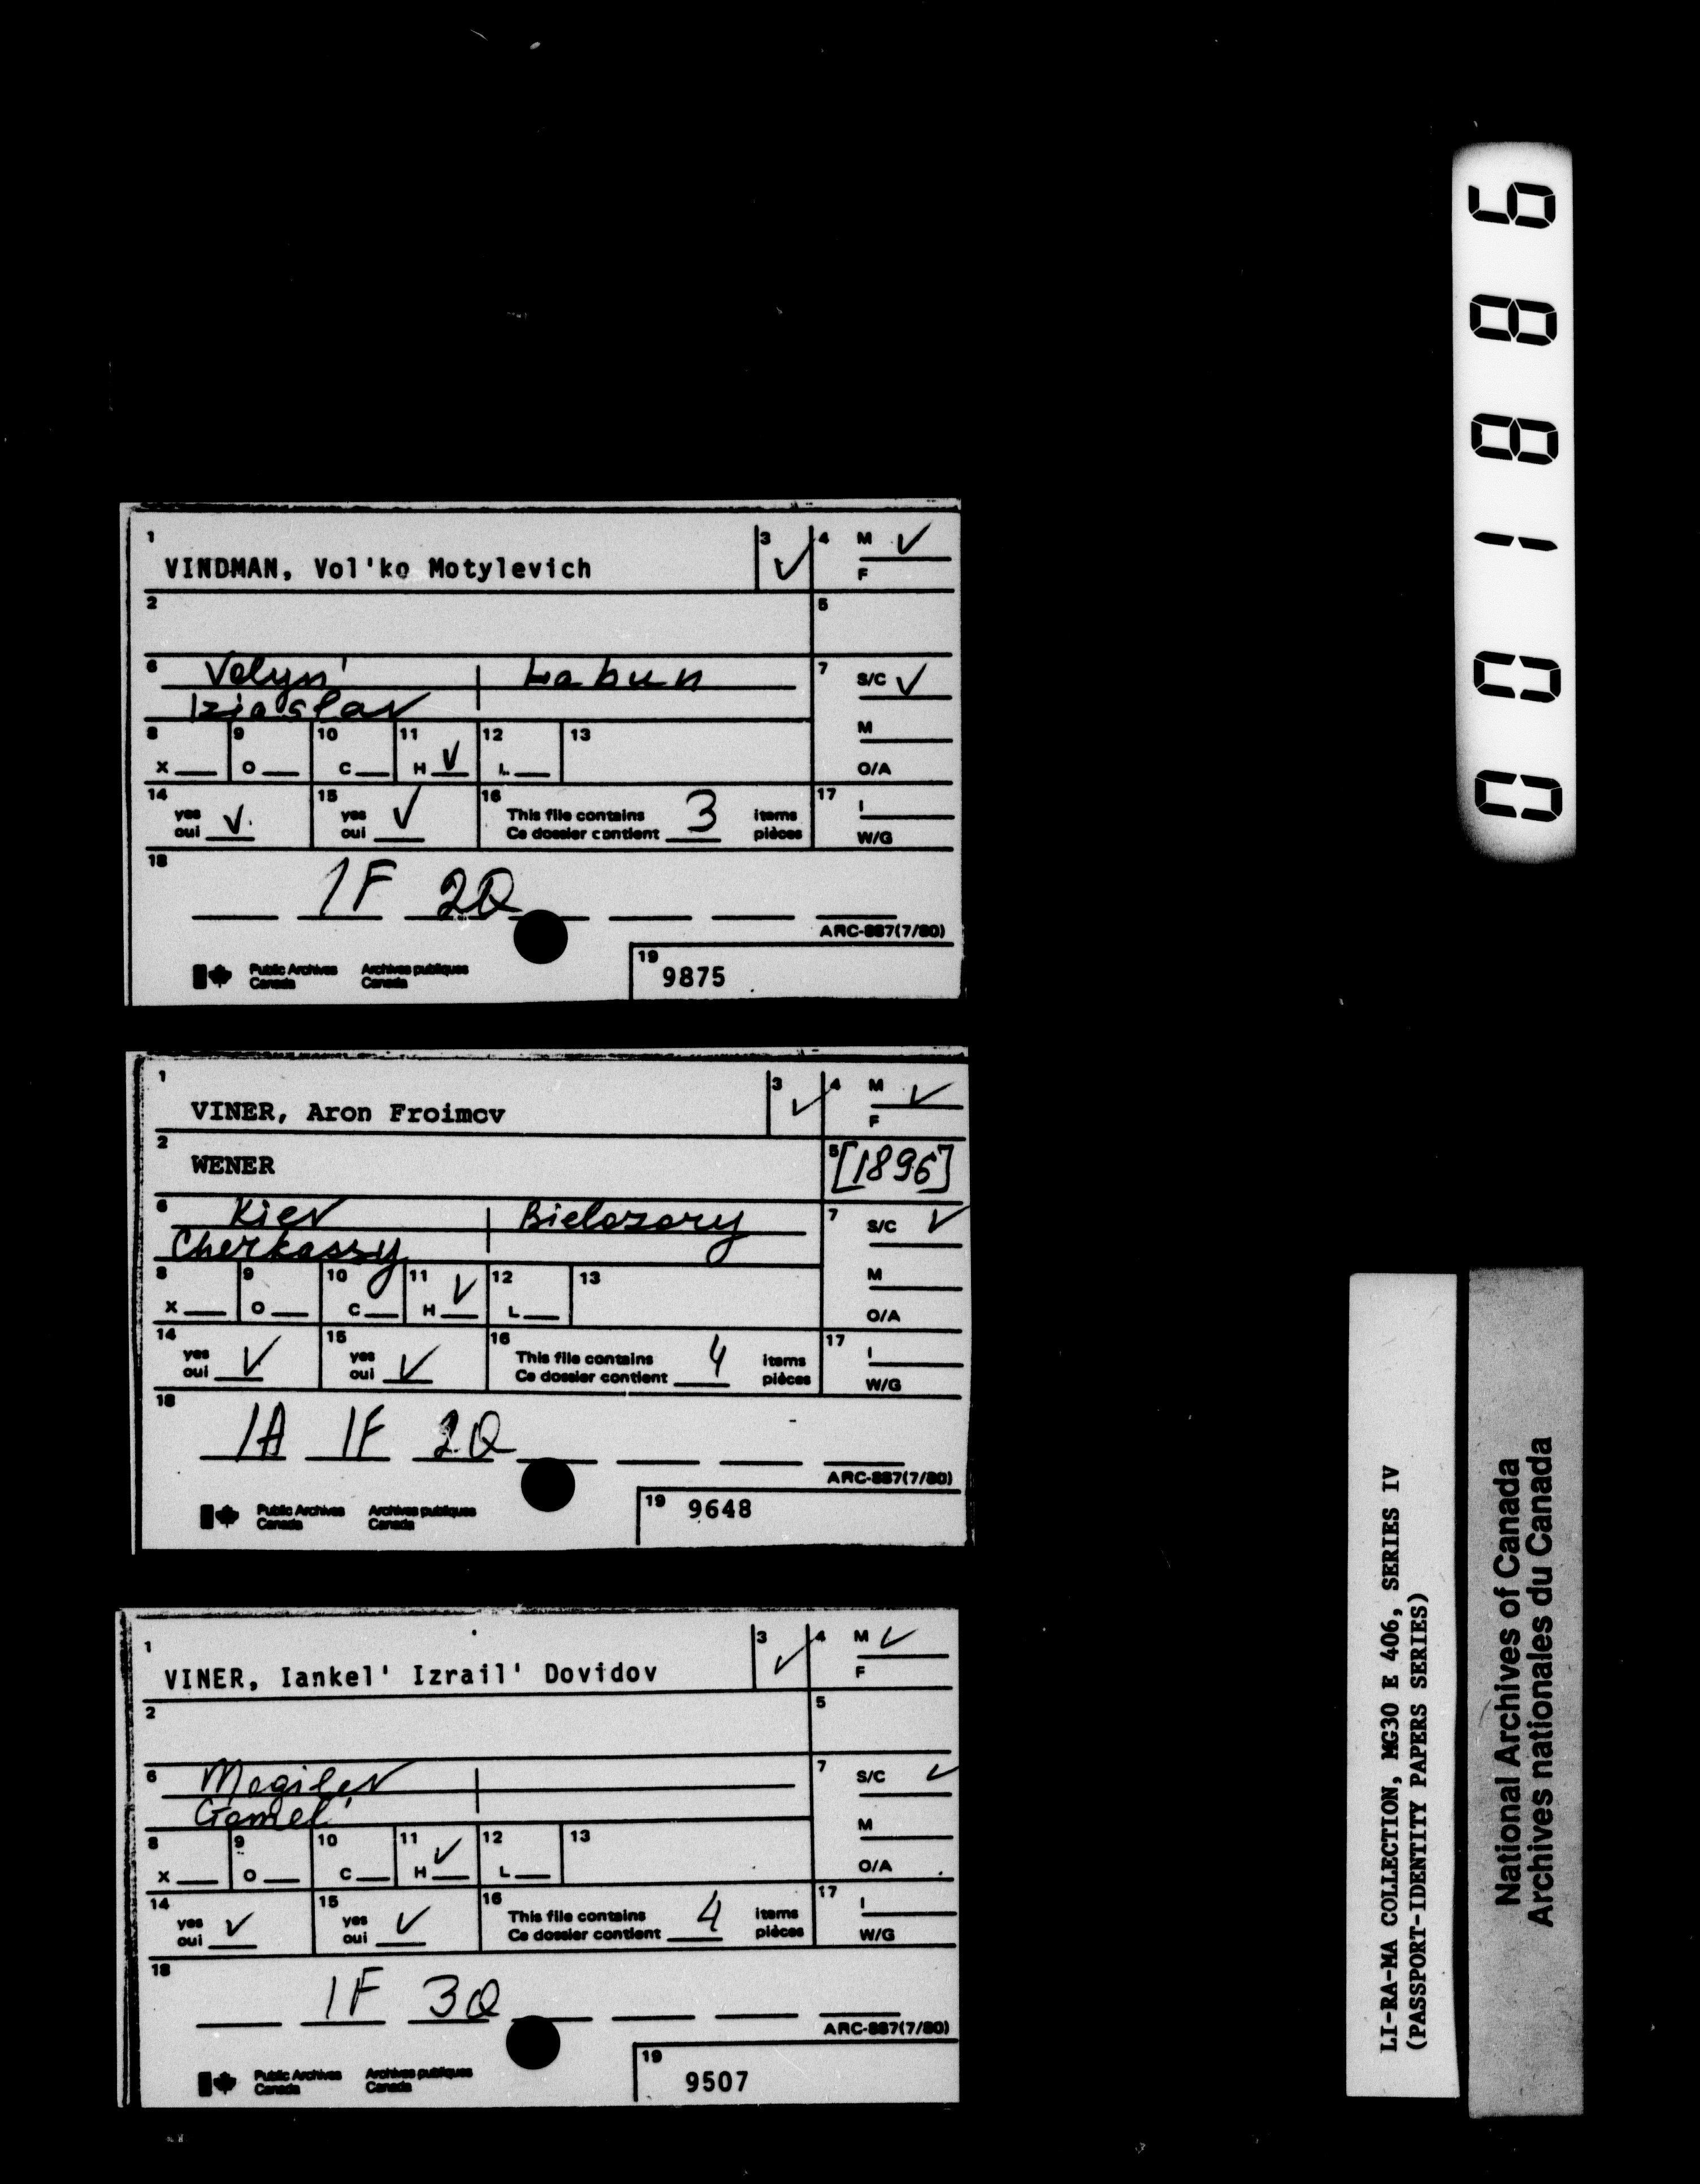 1
VINDMAN, Vol'ko Motylevich
3 ✓
4 M ✓
F
2
5
6 Volyn' | Labun
Iziaslav
7 S/C ✓
M
O/A
8 X 9 O 10 C 11 H ✓ 12 L 13
14 yes oui ✓ 15 yes oui ✓ 16 This file contains 3 items
Ce dossier contient pièces
17 I
W/G
18 1F 2Q
ARC-887(7/80)
Public Archives Canada Archives publiques Canada
19 9875
1
VINER, Aron Froimov
3 ✓
4 M ✓
F
2 WENER
5 [1896]
6 Kiev | Bielozory
Cherkassy
7 S/C ✓
M
O/A
8 X 9 O 10 C 11 H ✓ 12 L 13
14 yes oui ✓ 15 yes oui ✓ 16 This file contains 4 items
Ce dossier contient pièces
17 I
W/G
18 1A 1F 2Q
ARC-887(7/80)
Public Archives Canada Archives publiques Canada
19 9648
1
VINER, Iankel' Izrail' Dovidov
3 ✓
4 M ✓
F
2
5
6 Mogilev
Gomel'
7 S/C ✓
M
O/A
8 X 9 O 10 C 11 H ✓ 12 L 13
14 yes oui ✓ 15 yes oui ✓ 16 This file contains 4 items
Ce dossier contient pièces
17 I
W/G
18 1F 3Q
ARC-887(7/80)
Public Archives Canada Archives publiques Canada
19 9507
001886
LI-RA-MA COLLECTION, MG30 E 406, SERIES IV
(PASSPORT-IDENTITY PAPERS SERIES)
National Archives of Canada
Archives nationales du Canada